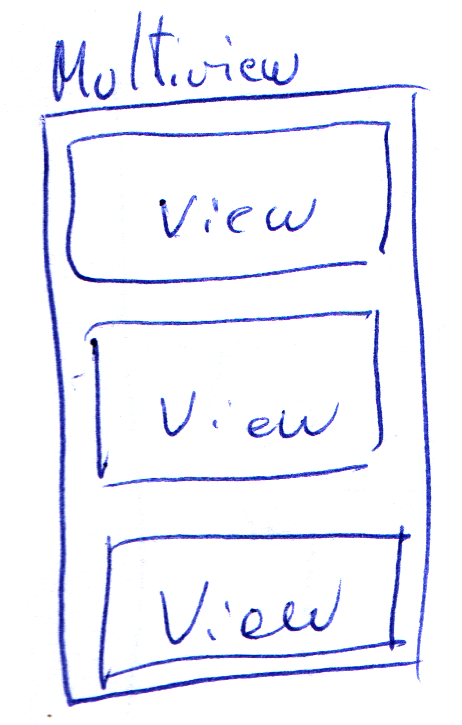 Multiview
View
View
View